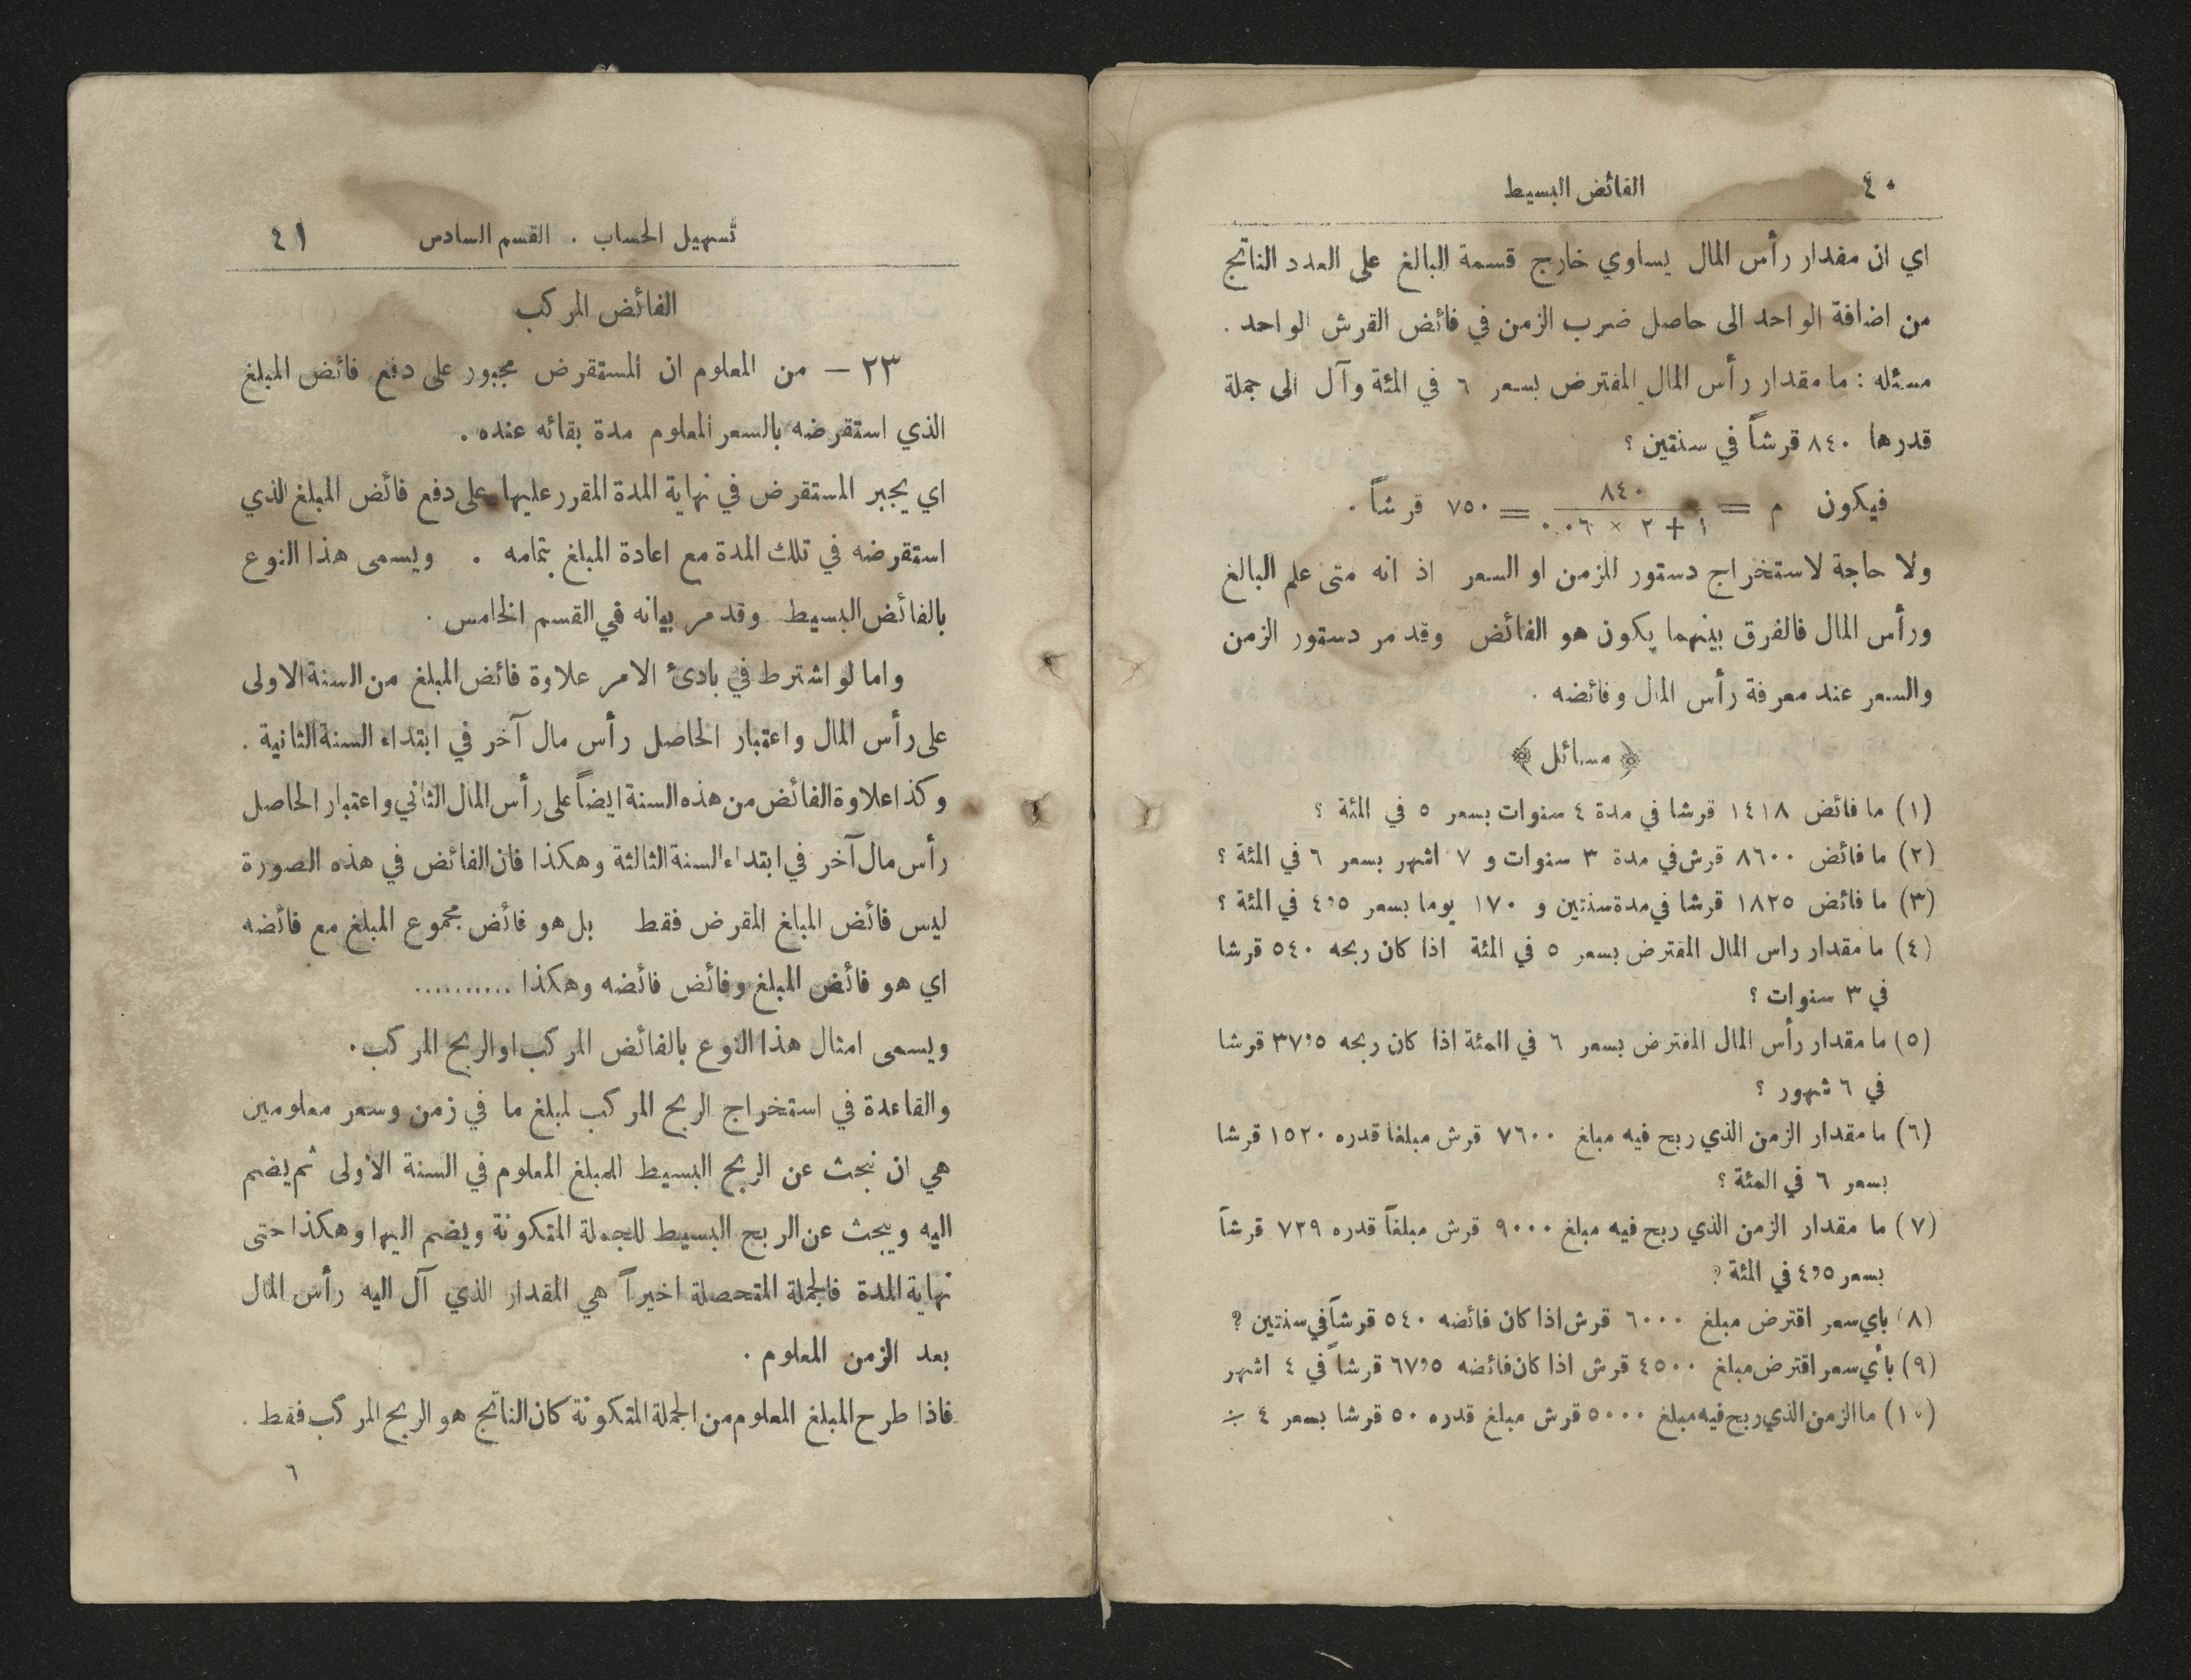 ٤٠
الفائض البسيط
اي ان مقدار رأس المال يساوي خارج قسمة البالغ على العدد الناتج
من اضافة الواحد الى حاصل ضرب الزمن في فائض القرش الواحد .
مسئله : ما مقدار رأس المال المفترض بسعر ٦ في المئة وآل الى جملة
قدرها ٨٤٠ قرشاً في سنتين ؟
فيكون م = ٨٤٠ / ١ + ٢ × ٠٠٦ = ٧٥٠ قرشاً .
ولا حاجة لاستخراج دستور للزمن او السعر اذ انه متى علم البالغ
ورأس المال فالفرق بينهما يكون هو الفائض وقد مر دستور الزمن
والسعر عند معرفة رأس المال وفائضه .
﴿ مسائل ﴾
(١) ما فائض ١٤١٨ قرشا في مدة ٤ سنوات بسعر ٥ في المئة ؟
(٢) ما فائض ٨٦٠٠ قرش في مدة ٣ سنوات و ٧ اشهر بسعر ٦ في المئة ؟
(٣) ما فائض ١٨٢٥ قرشا في مدة سنتين و ١٧٠ يوما بسعر ٤,٥ في المئة ؟
(٤) ما مقدار راس المال المفترض بسعر ٥ في المئة اذا كان ربحه ٥٤٠ قرشا
في ٣ سنوات ؟
(٥) ما مقدار رأس المال المفترض بسعر ٦ في المئة اذا كان ربحه ٣٧,٥ قرشا
في ٦ شهور ؟
(٦) ما مقدار الزمن الذي ربح فيه مبلغ ٧٦٠٠ قرش مبلغا قدره ١٥٢٠ قرشا
بسعر ٦ في المئة ؟
(٧) ما مقدار الزمن الذي ربح فيه مبلغ ٩٠٠٠ قرش مبلغاً قدره ٧٢٩ قرشاً
بسعر ٤,٥ في المئة ؟
(٨) باي سعر اقترض مبلغ ٦٠٠٠ قرش اذا كان فائضه ٥٤٠ قرشاً في سنتين ؟
(٩) بأي سعر اقترض مبلغ ٤٥٠٠ قرش اذا كان فائضه ٦٧,٥ قرشاً في ٤ اشهر
(١٠) ما الزمن الذي ربح فيه مبلغ ٥٠٠٠ قرش مبلغ قدره ٥٠ قرشا بسعر ٤ ٪
تسهيل الحساب . القسم السادس
٤١
الفائض المركب
٢٣ — من المعلوم ان المستقرض مجبور على دفع فائض المبلغ
الذي استقرضه بالسعر المعلوم مدة بقائه عنده .
اي يجبر المستقرض في نهاية المدة المقرر عليها على دفع فائض المبلغ الذي
استقرضه في تلك المدة مع اعادة المبلغ بتمامه . ويسمى هذا النوع
بالفائض البسيط وقد مر بيانه في القسم الخامس .
واما لو اشترط في بادئ الامر علاوة فائض المبلغ من السنة الاولى
على رأس المال واعتبار الحاصل رأس مال آخر في ابتداء السنة الثانية .
وكذا علاوة الفائض من هذه السنة ايضاً على رأس المال الثاني واعتبار الحاصل
رأس مال آخر في ابتداء السنة الثالثة وهكذا فان الفائض في هذه الصورة
ليس فائض المبلغ المقرض فقط بل هو فائض مجموع المبلغ مع فائضه
اي هو فائض المبلغ وفائض فائضه وهكذا ..........
ويسمى امثال هذا النوع بالفائض المركب او الربح المركب .
والقاعدة في استخراج الربح المركب لمبلغ ما في زمن وسعر معلومين
هي ان نبحث عن الربح البسيط للمبلغ المعلوم في السنة الاولى ثم يضم
اليه ويبحث عن الربح البسيط للجملة المتكونة ويضم اليها وهكذا حتى
نهاية المدة فالجملة المتحصلة اخيراً هي المقدار الذي آل اليه رأس المال
بعد الزمن المعلوم .
فاذا طرح المبلغ المعلوم من الجملة المتكونة كان الناتج هو الربح المركب فقط .
٦